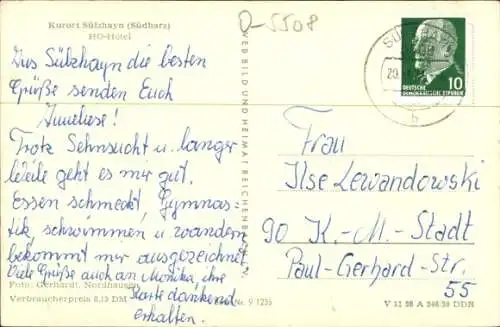 Kurort Sülzhayn (Südharz)
HO-Hotel
D-5508
Aus Sülzhayn die besten
Grüße senden Euch
Anneliese!
Trotz Sehnsucht u. langer
Weile geht es mir gut.
Essen schmeckt, Gymnas-
tik, schwimmen u. wandern
bekommt mir ausgezeichnet.
Viele Grüße auch an Monika, ihre
Karte dankend
erhalten.
Foto: Gerhardt, Nordhausen
Verbraucherpreis 0,15 DM
Nr. 9 1235
VEB BILD UND HEIMAT REICHENBACH
SÜLZHAYN
20.
b
10
DEUTSCHE
DEMOKRATISCHE REPUBLIK
Frau
Ilse Lewandowski
90 K.-M.-Stadt
Paul-Gerhard-Str.
55
V 11 28 A 246/59 DDR